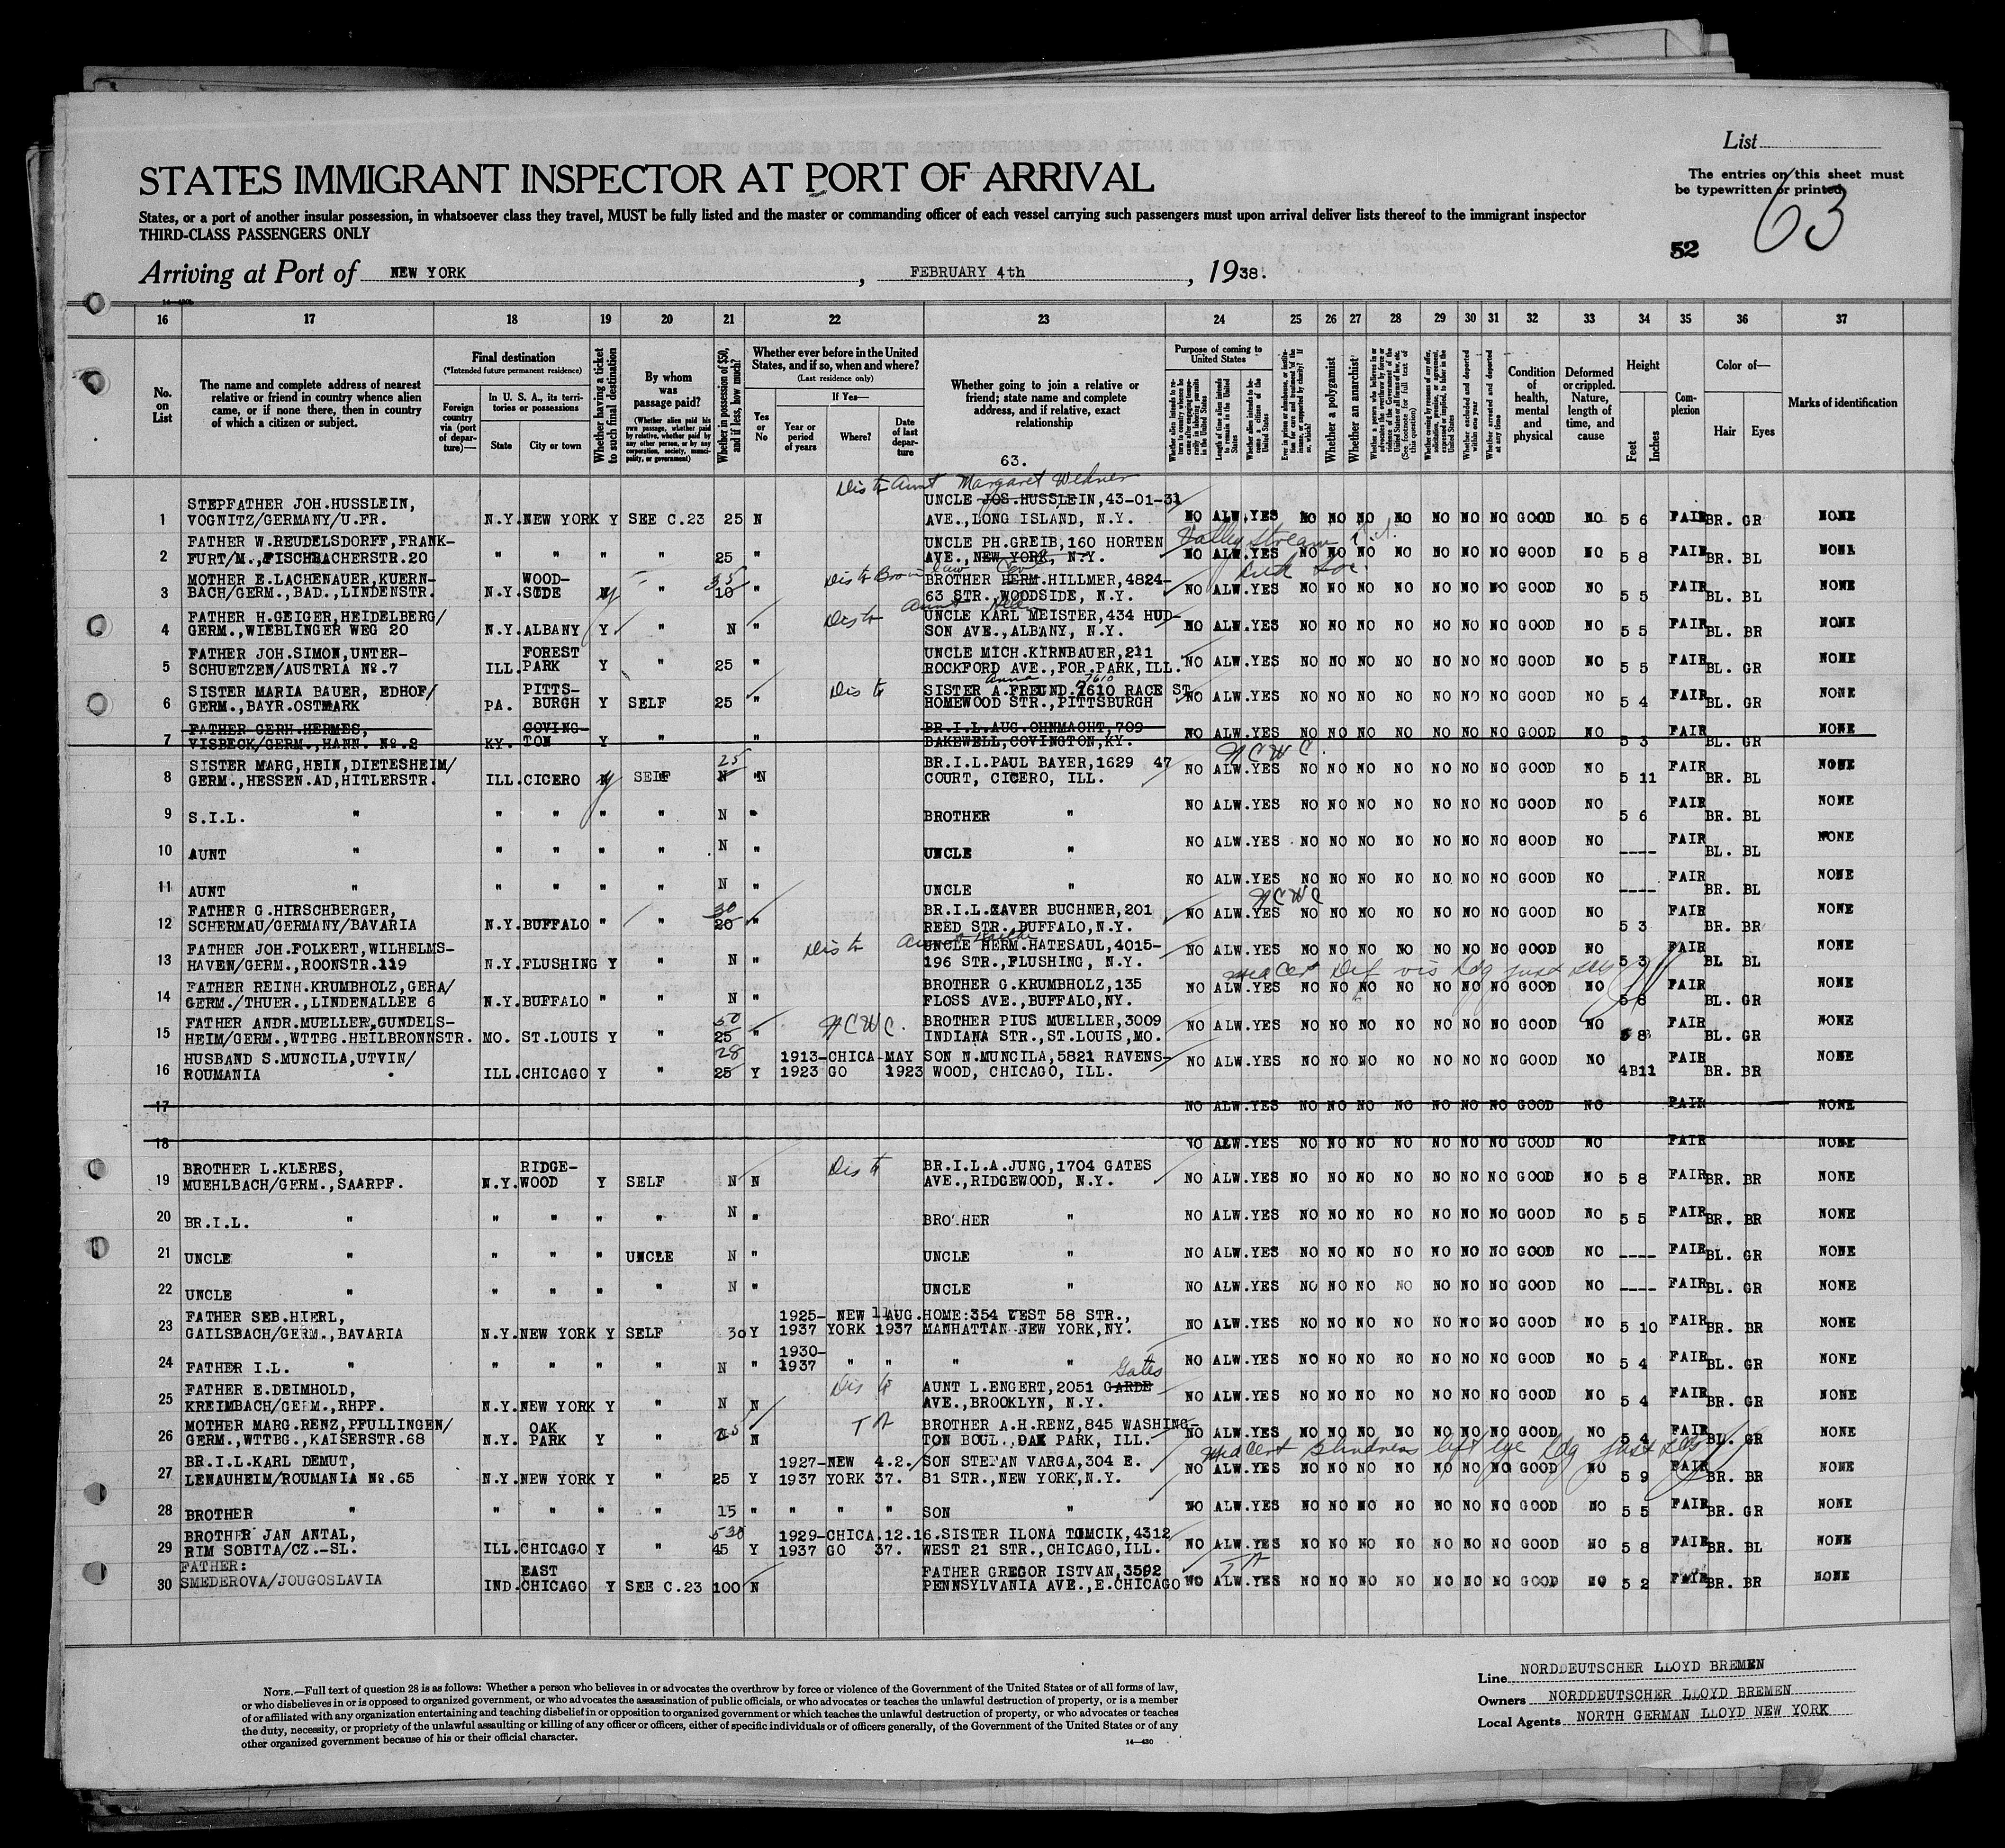 List
The entries on this sheet must
be typewritten or printed
STATES IMMIGRANT INSPECTOR AT PORT OF ARRIVAL
States, or a port of another insular possession, in whatsoever class they travel, MUST be fully listed and the master or commanding officer of each vessel carrying such passengers must upon arrival deliver lists thereof to the immigrant inspector
THIRD-CLASS PASSENGERS ONLY
52 63
Arriving at Port of NEW YORK, FEBRUARY 4th, 1938.
16 17 18 19 20 21 22 23 24 25 26 27 28 29 30 31 32 33 34 35 36 37
No. on List
The name and complete address of nearest relative or friend in country whence alien came, or if none there, then in country of which a citizen or subject.
Final destination
(*Intended future permanent residence)
Foreign country via (port of departure)—
In U. S. A., its territories or possessions
State
City or town
Whether having a ticket to such final destination
By whom was passage paid?
(Whether alien paid his own passage, whether paid by relative, whether paid by any other person, or by any corporation, society, municipality, or government)
Whether in possession of $50, and if less, how much?
Whether ever before in the United States, and if so, when and where?
(Last residence only)
Yes or No
If Yes—
Year or period of years
Where?
Date of last departure
Whether going to join a relative or friend; state name and complete address, and if relative, exact relationship
63.
Purpose of coming to United States
Length of time alien intends to remain in the United States
Whether alien intends to become a citizen of the United States
Whether a polygamist
Whether an anarchist
Whether excluded and deported within one year
Whether arrested and deported at any time
Condition of health, mental and physical
Deformed or crippled. Nature, length of time, and cause
Height
Feet
Inches
Complexion
Color of—
Hair
Eyes
Marks of identification
Dis to Aunt Margaret Wehner
1 STEPFATHER JOH.HUSSLEIN, VOGNITZ/GERMANY/U.FR. N.Y. NEW YORK Y SEE C.23 25 N UNCLE JOS.HUSSLEIN,43-01-31 AVE.,LONG ISLAND, N.Y. NO ALW.YES NO NO NO NO NO NO NO GOOD NO 5 6 FAIR BR. GR NONE
2 FATHER W.REUDELSDORFF,FRANKFURT/M.,FISCHBACHERSTR.20 " " " " 25 " UNCLE PH.GREIB,160 HORTEN AVE.,NEW YORK, N.Y. Valley Stream NO ALW.YES NO NO NO NO NO NO NO GOOD NO 5 8 FAIR BR. BL NONE
3 MOTHER E.LACHENAUER,KUERNBACH/GERM.,BAD.,LINDENSTR. N.Y. WOODSIDE Y " 35 10 " BROTHER HERM.HILLMER,4824-63 STR.,WOODSIDE, N.Y. NO ALW.YES NO NO NO NO NO NO NO GOOD NO 5 5 FAIR BL. BL NONE
4 FATHER H.GEIGER,HEIDELBERG/GERM.,WIEBLINGER WEG 20 N.Y. ALBANY Y " N " Dis to Aunt UNCLE KARL MEISTER,434 HUDSON AVE.,ALBANY, N.Y. NO ALW.YES NO NO NO NO NO NO NO GOOD NO 5 5 FAIR BL. BR NONE
5 FATHER JOH.SIMON,UNTERSCHUETZEN/AUSTRIA No.7 ILL. FOREST PARK Y " 25 " UNCLE MICH.KIRNBAUER,211 ROCKFORD AVE.,FOR.PARK,ILL. NO ALW.YES NO NO NO NO NO NO NO GOOD NO 5 5 FAIR BL. GR NONE
6 SISTER MARIA BAUER, EDHOF/GERM.,BAYR.OSTMARK PA. PITTSBURGH Y SELF 25 " Dis to Anna 7610 SISTER A.FREUND.7610 RACE ST HOMEWOOD STR.,PITTSBURGH NO ALW.YES NO NO NO NO NO NO NO GOOD NO 5 4 FAIR BL. GR NONE
7 FATHER GERH.HERMES, VISBECK/GERM.,HANN. No.2 KY. COVINGTON Y " " BR.I.L.AUG.OHNMACHT,709 BAKEWELL,COVINGTON,KY. NO ALW.YES NO NO NO NO NO NO NO GOOD NO 5 3 FAIR BL. GR NONE
8 SISTER MARG,HEIN,DIETESHEIM/GERM.,HESSEN.AD,HITLERSTR. ILL. CICERO y SELF 25 N N BR.I.L.PAUL BAYER,1629 47 COURT, CICERO, ILL. N C W C. NO ALW.YES NO NO NO NO NO NO NO GOOD NO 5 11 FAIR BR. BL NONE
9 S.I.L. " " " " " N " BROTHER " NO ALW.YES NO NO NO NO NO NO NO GOOD NO 5 6 FAIR BR. BL NONE
10 AUNT " " " " " N " UNCLE " NO ALW.YES NO NO NO NO NO NO NO GOOD NO ---- FAIR BL. BL NONE
11 AUNT " " " " " N " UNCLE " NO ALW.YES NO NO NO NO NO NO NO GOOD NO ---- FAIR BR. BL NONE
12 FATHER G.HIRSCHBERGER, SCHERMAU/GERMANY/BAVARIA N.Y. BUFFALO " " 30 20 " BR.I.L.XAVER BUCHNER,201 REED STR.,BUFFALO,N.Y. N C W C NO ALW.YES NO NO NO NO NO NO NO GOOD NO 5 3 FAIR BR. BR NONE
13 FATHER JOH.FOLKERT,WILHELMSHAVEN/GERM.,ROONSTR.119 N.Y. FLUSHING Y " N " Dis to UNCLE HERM.HATESAUL,4015-196 STR.,FLUSHING, N.Y. NO ALW.YES NO NO NO NO NO NO NO GOOD NO 5 3 FAIR BL BL NONE
14 FATHER REINH.KRUMBHOLZ,GERA/GERM./THUER.,LINDENALLEE 6 N.Y. BUFFALO " " N " BROTHER G.KRUMBHOLZ,135 FLOSS AVE.,BUFFALO,NY. Med Cert Def vis NO ALW.YES NO NO NO NO NO NO NO GOOD NO 5 8 FAIR BL. GR NONE
15 FATHER ANDR.MUELLER,GUNDELSHEIM/GERM.,WTTBG.HEILBRONNSTR. MO. ST.LOUIS Y " 50 25 " N C W C. BROTHER PIUS MUELLER,3009 INDIANA STR.,ST.LOUIS,MO. NO ALW.YES NO NO NO NO NO NO NO GOOD NO 5 8 FAIR BL. GR NONE
16 HUSBAND S.MUNCILA,UTVIN/ROUMANIA ILL. CHICAGO Y " 28 25 Y 1913-1923 CHICAGO MAY 1923 SON N.MUNCILA,5821 RAVENSWOOD, CHICAGO, ILL. NO ALW.YES NO NO NO NO NO NO NO GOOD NO 4 11 FAIR BR. BR NONE
17 NO ALW.YES NO NO NO NO NO NO NO GOOD NO FAIR NONE
18 NO ALW.YES NO NO NO NO NO NO NO GOOD NO FAIR NONE
19 BROTHER L.KLERES, MUEHLBACH/GERM.,SAARPF. N.Y. RIDGEWOOD Y SELF N N Dis to BR.I.L.A.JUNG,1704 GATES AVE.,RIDGEWOOD, N.Y. NO ALW.YES NO NO NO NO NO NO NO GOOD NO 5 8 FAIR BR. BR NONE
20 BR.I.L. " " " " " N " BROTHER " NO ALW.YES NO NO NO NO NO NO NO GOOD NO 5 5 FAIR BR. BR NONE
21 UNCLE " " " " UNCLE N " UNCLE " NO ALW.YES NO NO NO NO NO NO NO GOOD NO ---- FAIR BL. GR NONE
22 UNCLE " " " " " N " UNCLE " NO ALW.YES NO NO NO NO NO NO NO GOOD NO ---- FAIR BL. GR NONE
23 FATHER SEB.HIERL, GAILSBACH/GERM.,BAVARIA N.Y. NEW YORK Y SELF 30 Y 1925-1937 NEW YORK 11 AUG. 1937 HOME:354 WEST 58 STR., MANHATTAN NEW YORK,NY. NO ALW.YES NO NO NO NO NO NO NO GOOD NO 5 10 FAIR BR. BR NONE
24 FATHER I.L. " " " " " N " 1930-1937 " " " " NO ALW.YES NO NO NO NO NO NO NO GOOD NO 5 4 FAIR BL. GR NONE
25 FATHER E.DEIMHOLD, KREIMBACH/GERM.,RHPF. N.Y. NEW YORK Y " N N Dis to AUNT L.ENGERT,2051 GARDE Gates AVE.,BROOKLYN, N.Y. NO ALW.YES NO NO NO NO NO NO NO GOOD NO 5 4 FAIR BR. GR NONE
26 MOTHER MARG.RENZ,PFULLINGEN/GERM.,WTTBG.,KAISERSTR.68 N.Y. OAK PARK Y " N BROTHER A.H.RENZ,845 WASHINGTON BOUL.,OAK PARK, ILL. NO ALW.YES NO NO NO NO NO NO NO GOOD NO 5 4 FAIR BL. GR NONE
27 BR.I.L.KARL DEMUT, LENAUHEIM/ROUMANIA No.65 N.Y. NEW YORK Y " 25 Y 1927-1937 NEW YORK 4.2. 37. SON STEFAN VARGA,304 E. 81 STR.,NEW YORK,N.Y. Med Cert blindness left eye NO ALW.YES NO NO NO NO NO NO NO GOOD NO 5 9 FAIR BR. BR NONE
28 BROTHER " " " " " 15 " " " " SON " NO ALW.YES NO NO NO NO NO NO NO GOOD NO 5 5 FAIR BR. GR NONE
29 BROTHER JAN ANTAL, RIM SOBITA/CZ.-SL. ILL. CHICAGO Y " 45 Y 1929-1937 CHICAGO 12.16. 37. SISTER ILONA TOMCIK,4312 WEST 21 STR.,CHICAGO,ILL. NO ALW.YES NO NO NO NO NO NO NO GOOD NO 5 8 FAIR BR. BL NONE
30 FATHER: SMEDEROVA/JOUGOSLAVIA IND. EAST CHICAGO Y SEE C.23 100 N FATHER GREGOR ISTVAN,3592 PENNSYLVANIA AVE.,E.CHICAGO NO ALW.YES NO NO NO NO NO NO NO GOOD NO 5 2 FAIR BR. BR NONE
NOTE.—Full text of question 28 is as follows: Whether a person who believes in or advocates the overthrow by force or violence of the Government of the United States or of all forms of law,
or who disbelieves in or is opposed to organized government, or who advocates the assassination of public officials, or who advocates or teaches the unlawful destruction of property, or is a member
of or affiliated with any organization entertaining and teaching disbelief in or opposition to organized government or which teaches the unlawful destruction of property, or who advocates or teaches
the duty, necessity, or propriety of the unlawful assaulting or killing of any officer or officers, either of specific individuals or of officers generally, of the Government of the United States or of any
other organized government because of his or their official character.
14—430
Line NORDDEUTSCHER LLOYD BREMEN
Owners NORDDEUTSCHER LLOYD BREMEN
Local Agents NORTH GERMAN LLOYD NEW YORK